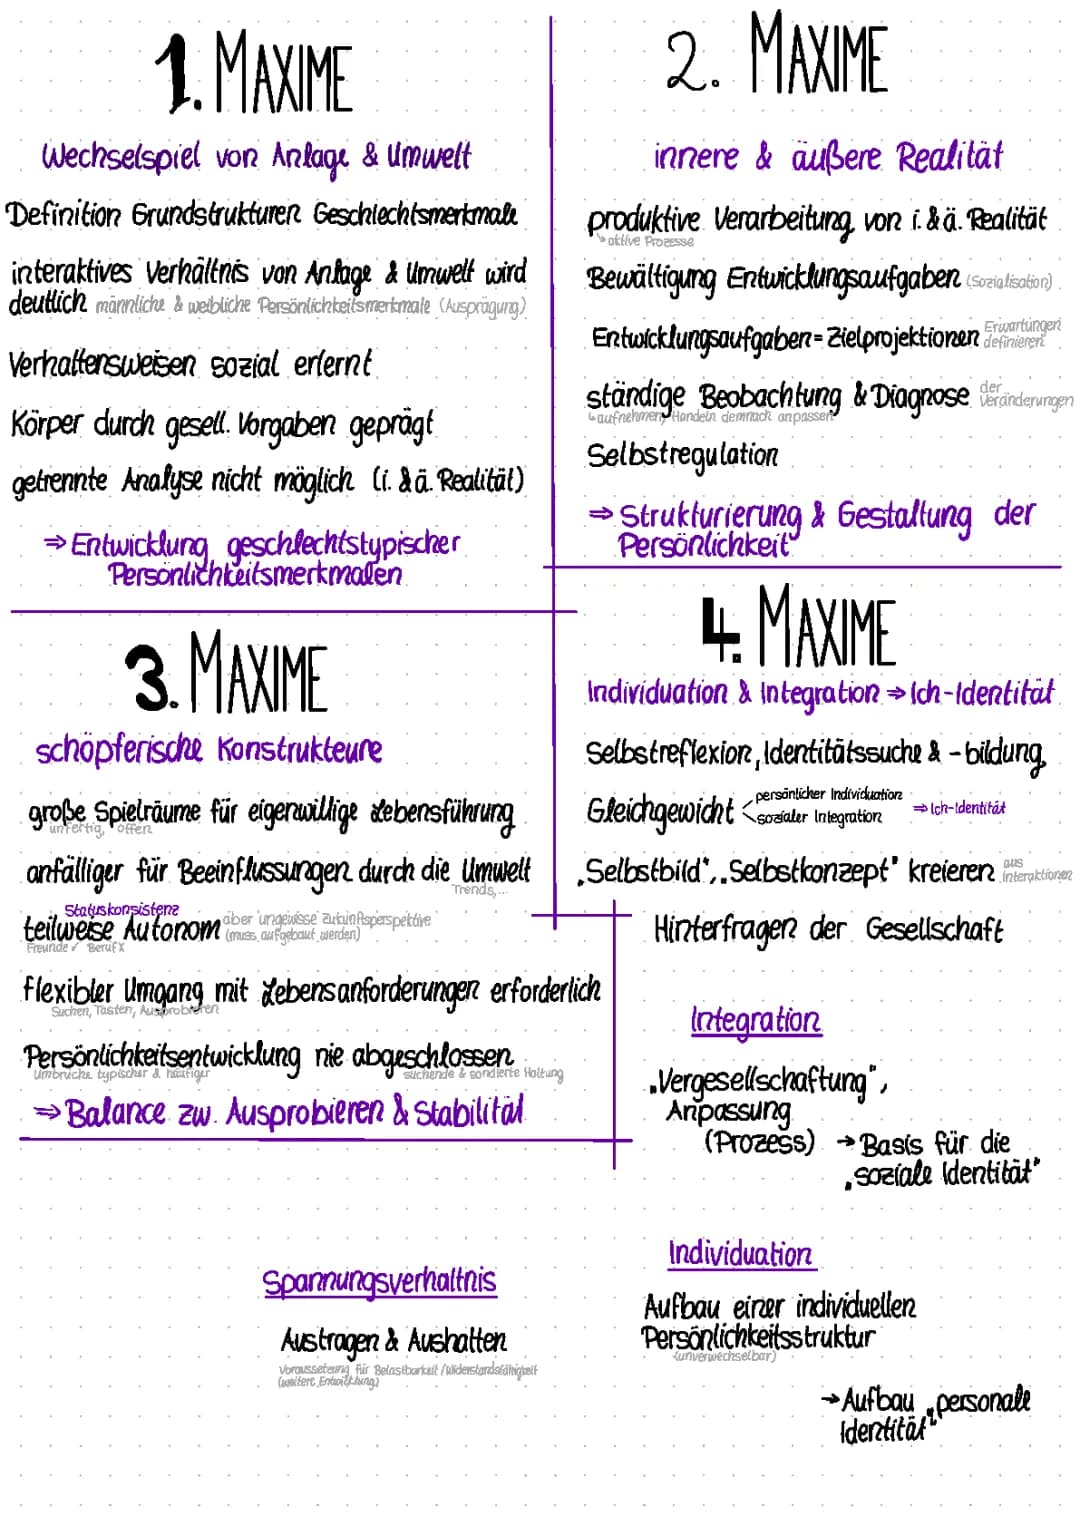 1. MAXIME
Wechselspiel von Anlage & Umwelt
Definition Grundstrukturen Geschlechtsmerkmale
interaktives Verhältnis von Anlage & Umwelt wird
deutlich männliche & weibliche Persönlichkeitsmerkmale (Ausprägung)
Verhaltensweisen sozial erlernt
Körper durch gesell. Vorgaben geprägt
getrennte Analyse nicht möglich (i. & ä. Realität)
⇒ Entwicklung geschlechtstypischer
Persönlichkeitsmerkmalen
2. MAXIME
innere & äußere Realität
produktive Verarbeitung von i. & ä. Realität
↳ aktive Prozesse
Bewältigung Entwicklungsaufgaben (Sozialisation)
Entwicklungsaufgaben = Zielprojektionen Erwartungen
definieren
ständige Beobachtung & Diagnose der
Veränderungen
↳ aufnehmen, Handeln demnach anpassen
Selbstregulation
⇒ Strukturierung & Gestaltung der
Persönlichkeit
3. MAXIME
schöpferische Konstrukteure
große Spielräume für eigenwillige Lebensführung
unfertig, offen
anfälliger für Beeinflussungen durch die Umwelt
Trends,...
Statuskonsistenz
teilweise Autonom aber ungewisse Zukunftsperspektive
(muss aufgebaut werden)
Freunde ✓ Beruf x
flexibler Umgang mit Lebensanforderungen erforderlich
Suchen, Tasten, Ausprobieren
Persönlichkeitsentwicklung nie abgeschlossen
Umbrüche typischer & häufiger suchende & sondierte Haltung
⇒ Balance zw. Ausprobieren & Stabilität
4. MAXIME
Individuation & Integration ⇒ Ich-Identität
Selbstreflexion, Identitätssuche & -bildung
Gleichgewicht < persönlicher Individuation
sozialer Integration ⇒ Ich-Identität
„Selbstbild", „Selbstkonzept" kreieren aus
Interaktionen
Hinterfragen der Gesellschaft
Integration
„Vergesellschaftung",
Anpassung
(Prozess) → Basis für die
„soziale Identität"
Individuation
Aufbau einer individuellen
Persönlichkeitsstruktur
(unverwechselbar)
→ Aufbau „personale
Identität"
Spannungsverhältnis
Austragen & Aushalten
Voraussetzung für Belastbarkeit / Widerstandsfähigkeit
(weitere Entwicklung)